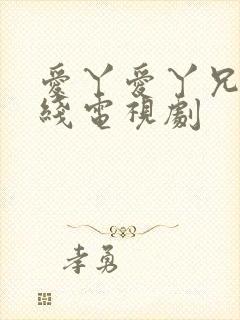 愛丫愛丫兄
綫電視劇
李勇